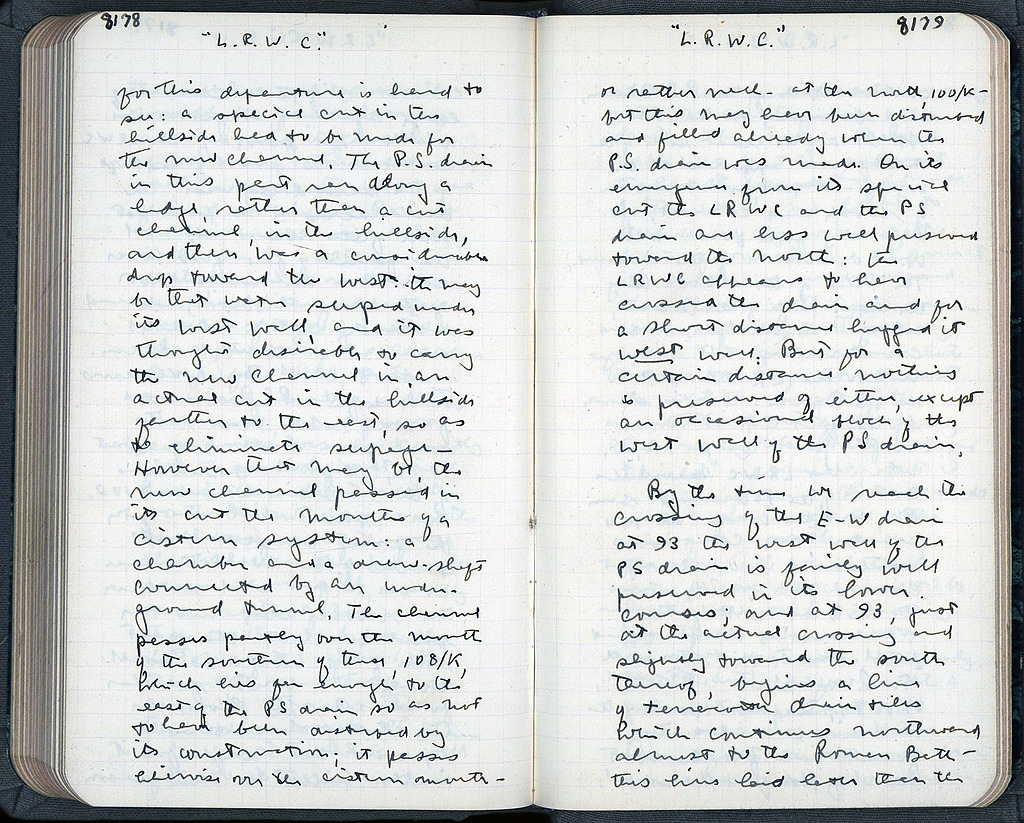 8178
"L.R.W.C."
for this departure is hard to
see: a special cut in the
hillside had to be made for
the new channel. The P.S. drain
in this part ran along a
ledge, rather than a cut
channel, in the hillside,
and there was a considerable
drop toward the west: it may
be that water seeped under
its west wall, and it was
thought desirable to carry
the new channel in an
actual cut in the hillside
farther to the east, so as
to eliminate seepage –
However that may be, the
new channel passed in
its cut the mouths of a
cistern system: a
chamber and a draw-shaft
connected by an under-
ground tunnel. The channel
passes partly over the mouth
of the southern of these, 108/K,
which lies far enough to the
east of the PS drain so as not
to have been disturbed by
its construction; it passes
likewise over the cistern mouth –
8179
"L.R.W.C."
or rather neck – at the north, 100/K –
but this may have been disturbed
and filled already when the
P.S. drain was made. On its
emergence from its special
cut the LRWC and the PS
drain are less well preserved
toward the north: the
LRWC appears to have
crossed the drain and for
a short distance hugged its
west wall. But for a
certain distance nothing
is preserved of either, except
an occasional block of the
west wall of the PS drain.
By the time we reach the
crossing of the E-W drain
at 93 the west wall of the
PS drain is fairly well
preserved in its lower
courses; and at 93, just
at the actual crossing and
slightly toward the south
thereof, begins a line
of terracotta drain tiles
which continues northward
almost to the Roman Bath –
this line laid later than the